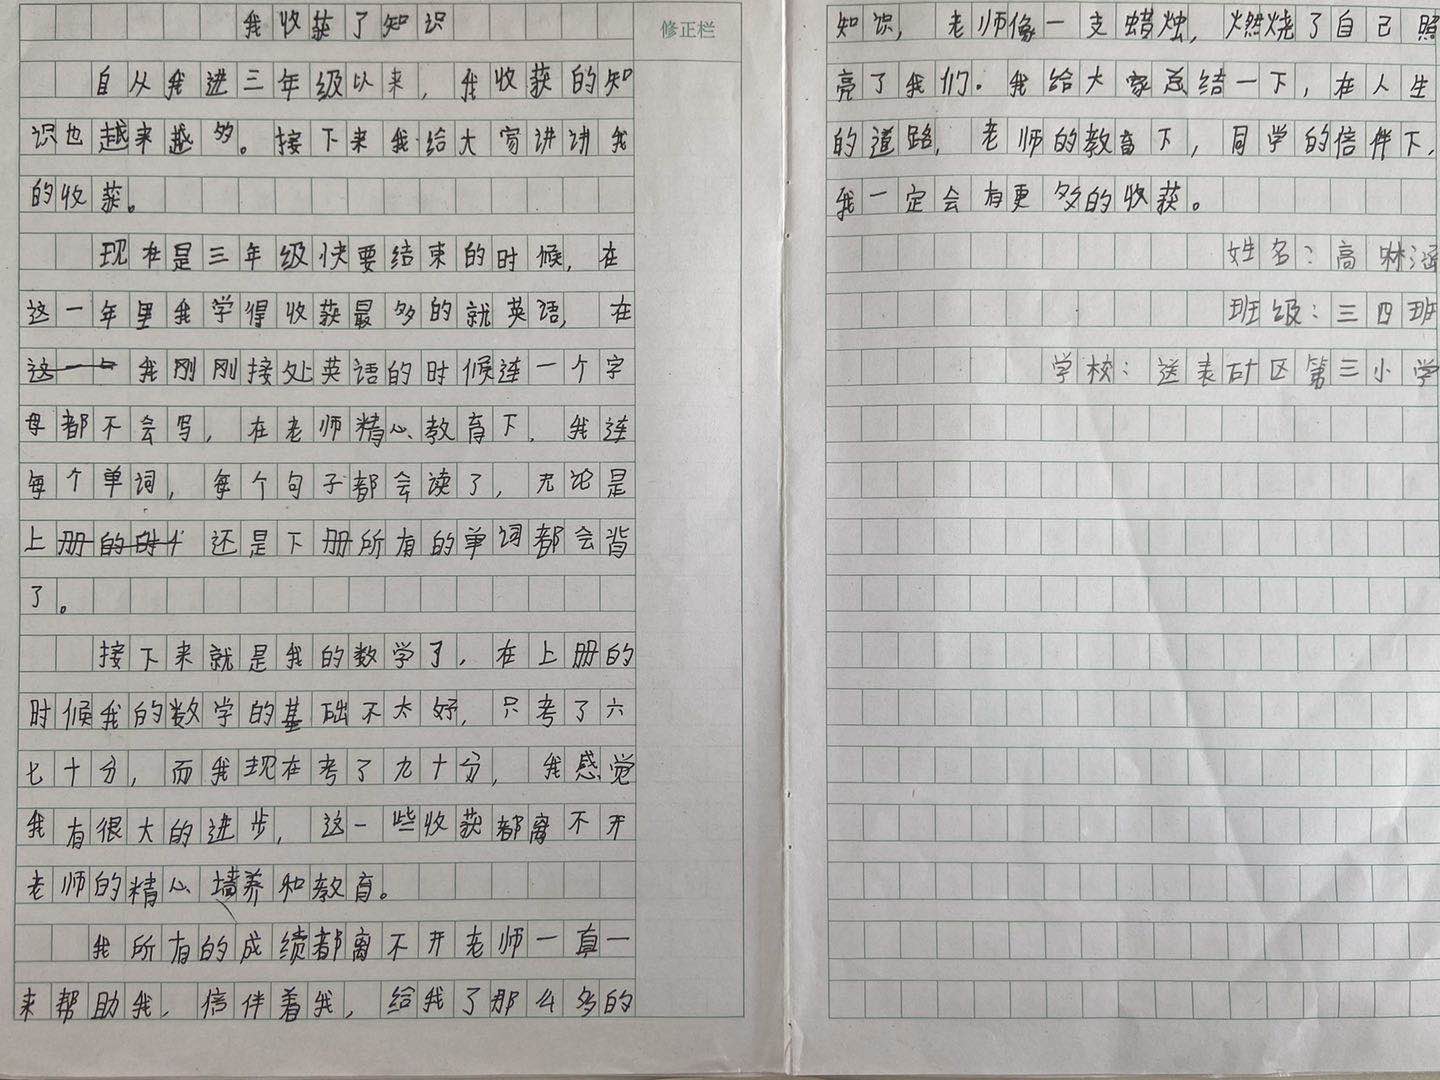 我收获了知识
修正栏
自从我进三年级以来，我收获的知
识也越来越多。接下来我给大家讲讲我
的收获。
现在是三年级快要结束的时候，在
这一年里我学得收获最多的就英语，在
这一 我刚刚接处英语的时候连一个字
母都不会写，在老师精心教育下，我连
每个单词，每个句子都会读了，无论是
上册的时 还是下册所有的单词都会背
了。
接下来就是我的数学了，在上册的
时候我的数学的基础不太好，只考了六
七十分，而我现在考了九十分，我感觉
我有很大的进步，这一些收获都离不开
老师的精心培养和教育。
我所有的成绩都离不开老师一直一
来帮助我，倍伴着我，给我了那么多的
知识，老师像一支蜡烛，燃烧了自己照
亮了我们．我给大家总结一下，在人生
的道路，老师的教育下，同学的倍伴下，
我一定会有更多的收获。
姓名：高琳涵
班级：三四班
学校：送表矿区第三小学